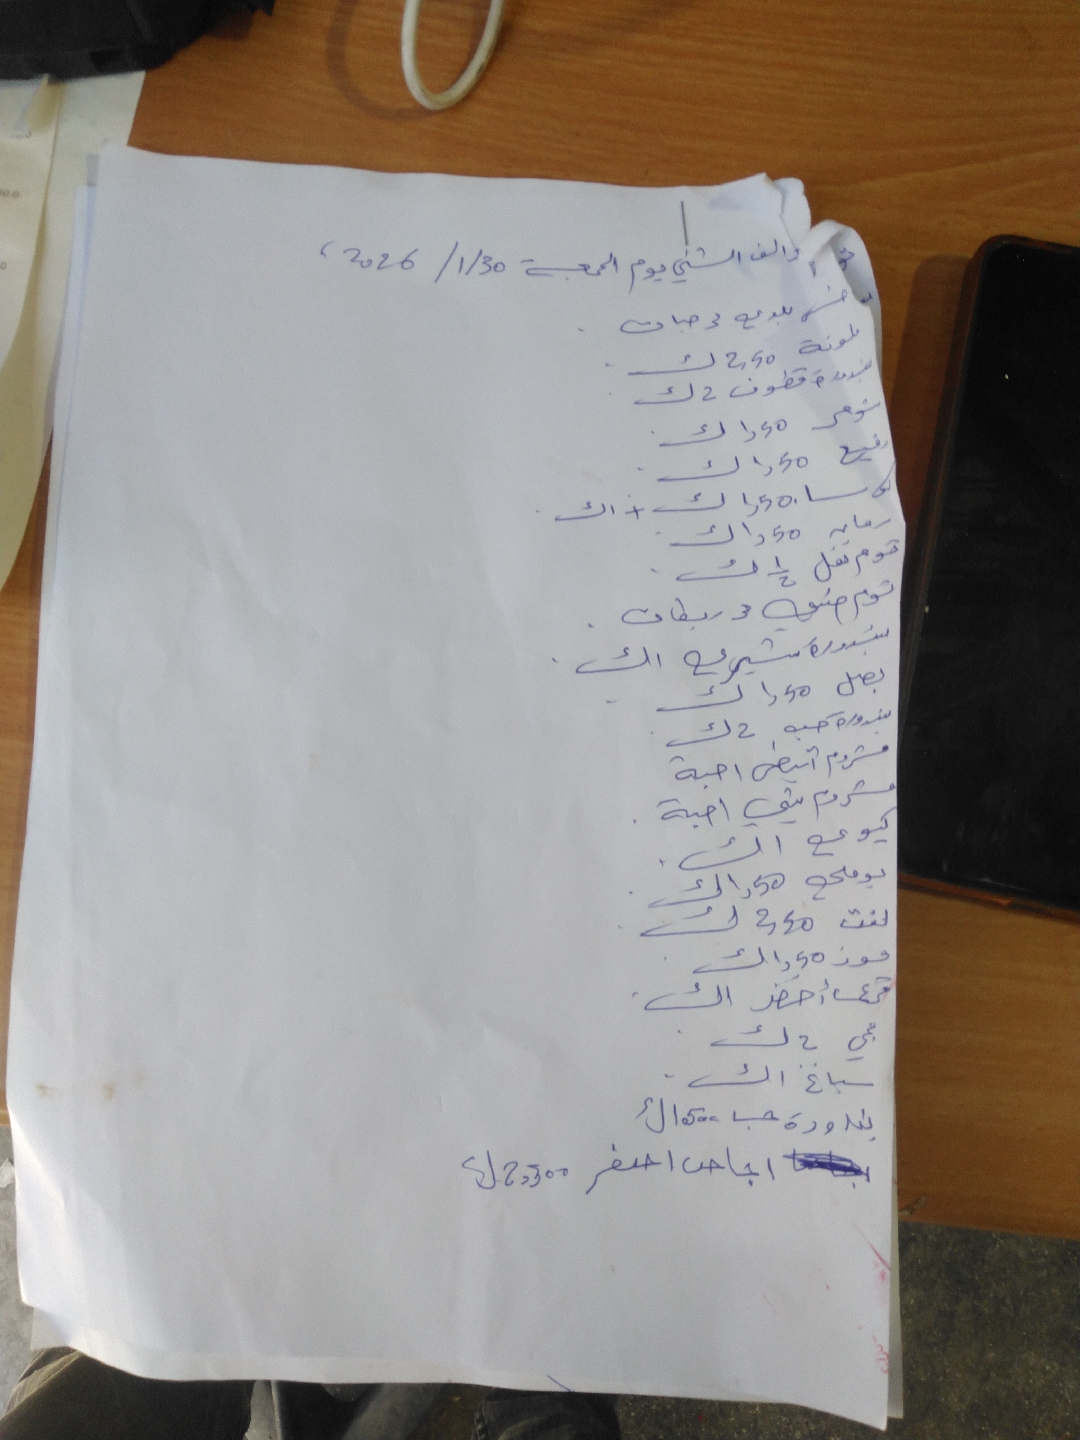 والف الشني يوم الجمعة 2026/1/30
بلدي 3 حبات
ليمونة 2,50 ك
بندورة قطوف 2 ك
شومر 1,50 ك
1,50 ك
كوسا 1,50 ك + 1 ك
رمان 1,50 ك
ثوم فل 1/2 ك
ثوم صيني 3 ربطات
بندورة شيري 1 ك
بصل 1,50 ك
بندورة حبه 2 ك
مشروم أبيض 1 حبة
مشروم بني 1 حبة
كيوي 1 ك
بوملي 1,50 ك
لفت 2,50 ك
موز 1,50 ك
قرع أخضر 1 ك
2 ك
سبانخ 1 ك
بندورة حب 1,500 ك
اجاص اصفر 2,500 ك